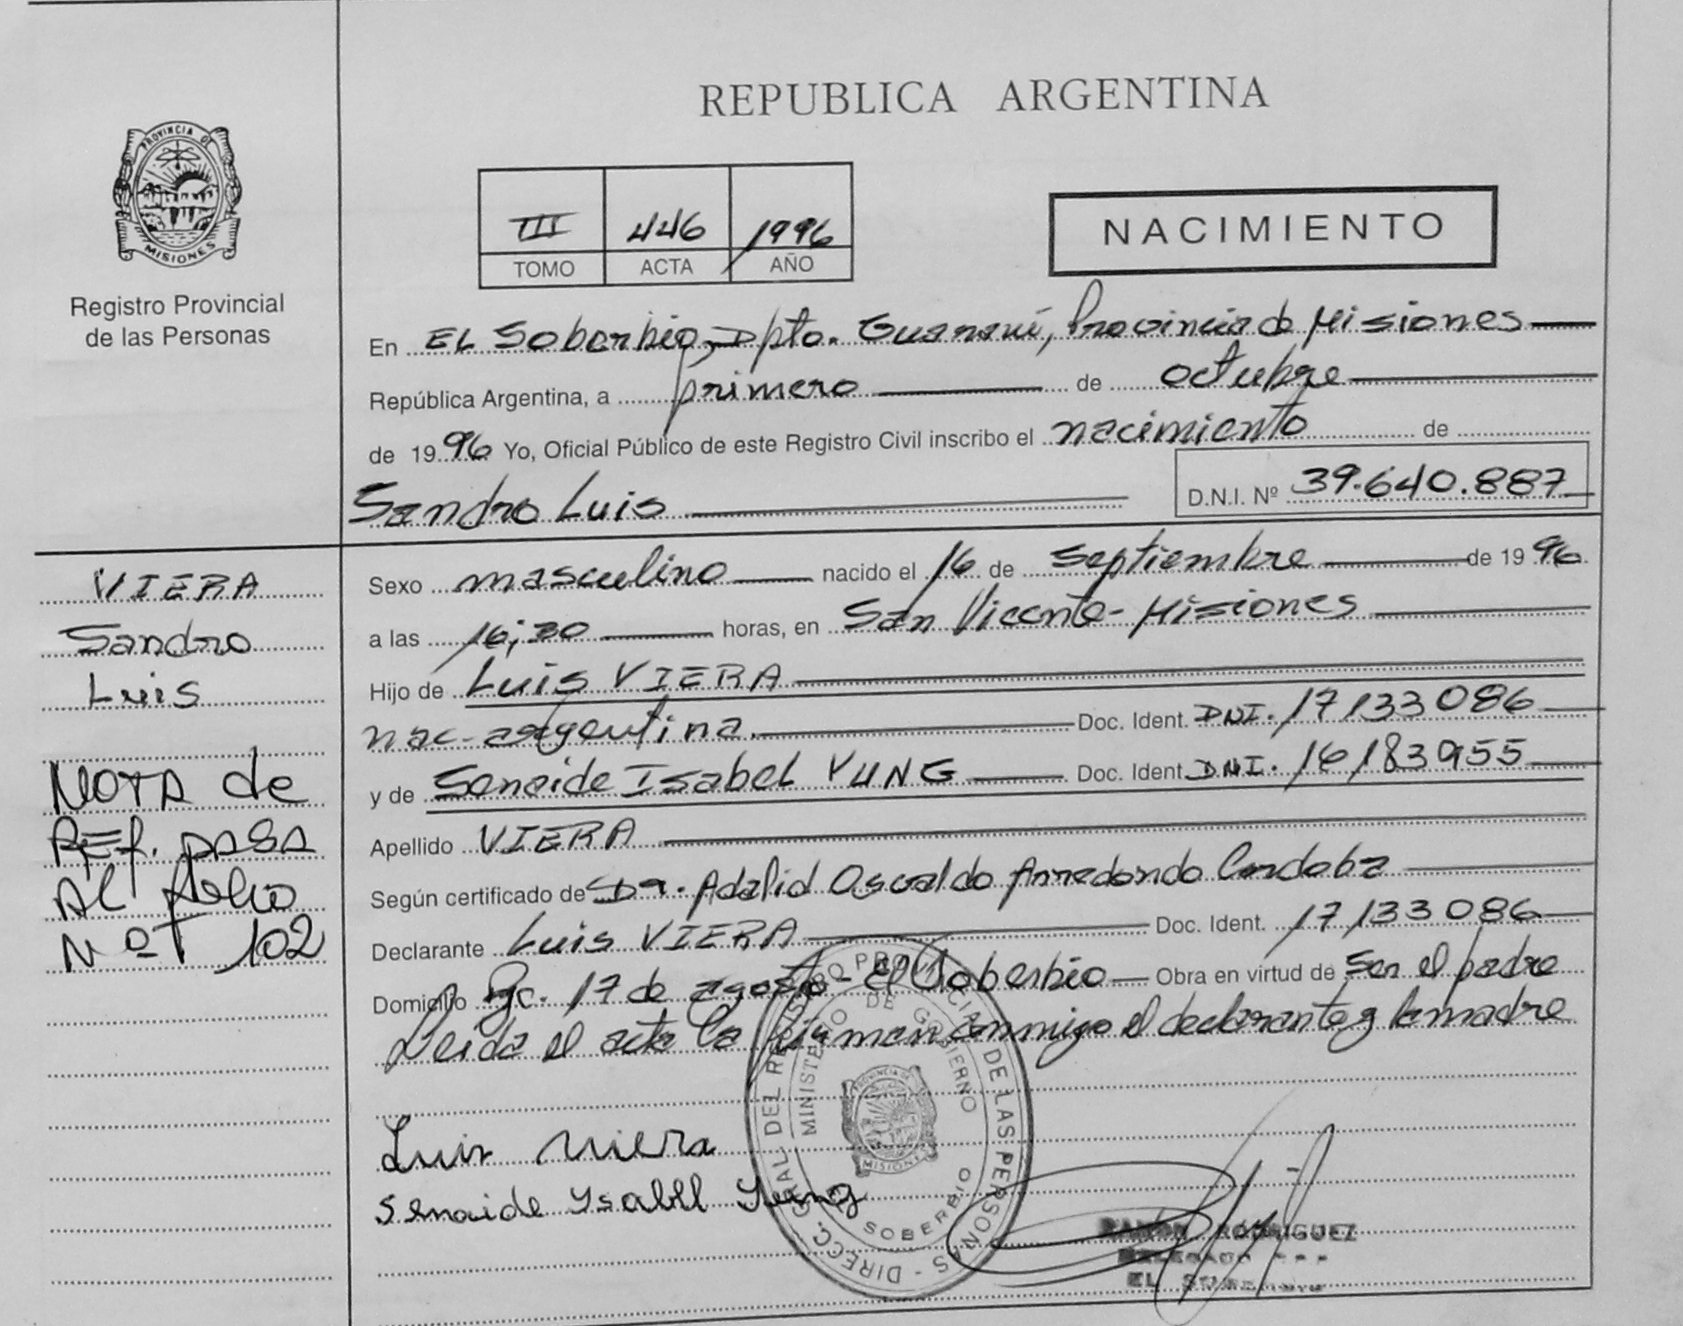 REPUBLICA ARGENTINA
PROVINCIA DE
MISIONES
Registro Provincial
de las Personas
III 446 1996
TOMO ACTA AÑO
NACIMIENTO
En EL Soberbio, Dpto. Guaraní, Provincia de Misiones
República Argentina, a primero de octubre
de 1996 Yo, Oficial Público de este Registro Civil inscribo el nacimiento de
Sandro Luis
D.N.I. Nº 39.640.887
VIERA
Sandro
Luis
NOTA de
REF. PASA
Al folio
Nº 102
Sexo masculino nacido el 16 de Septiembre de 1996
a las 16:30 horas, en San Vicente - Misiones
Hijo de Luis VIERA
nac. argentina Doc. Ident. DNI. 17133086
y de Senaide Isabel YUNG Doc. Ident. DNI. 16183955
Apellido VIERA
Según certificado de Dr. Adalid Osvaldo Arredondo Cordoba
Declarante Luis VIERA Doc. Ident. 17133086
Domicilio 17 de agosto - El Soberbio Obra en virtud de Ser el padre
Leida el acta la firman conmigo el declarante y la madre
Luis Viera
Senaide Ysabel Yung
DIRECC. GRAL. DEL REGISTRO PROVINCIAL DE LAS PERSONAS
MINISTERIO DE GOBIERNO
PROVINCIA DE
MISIONES
SOBERBIO
RAMÓN RODRIGUEZ
DELEGADO
EL